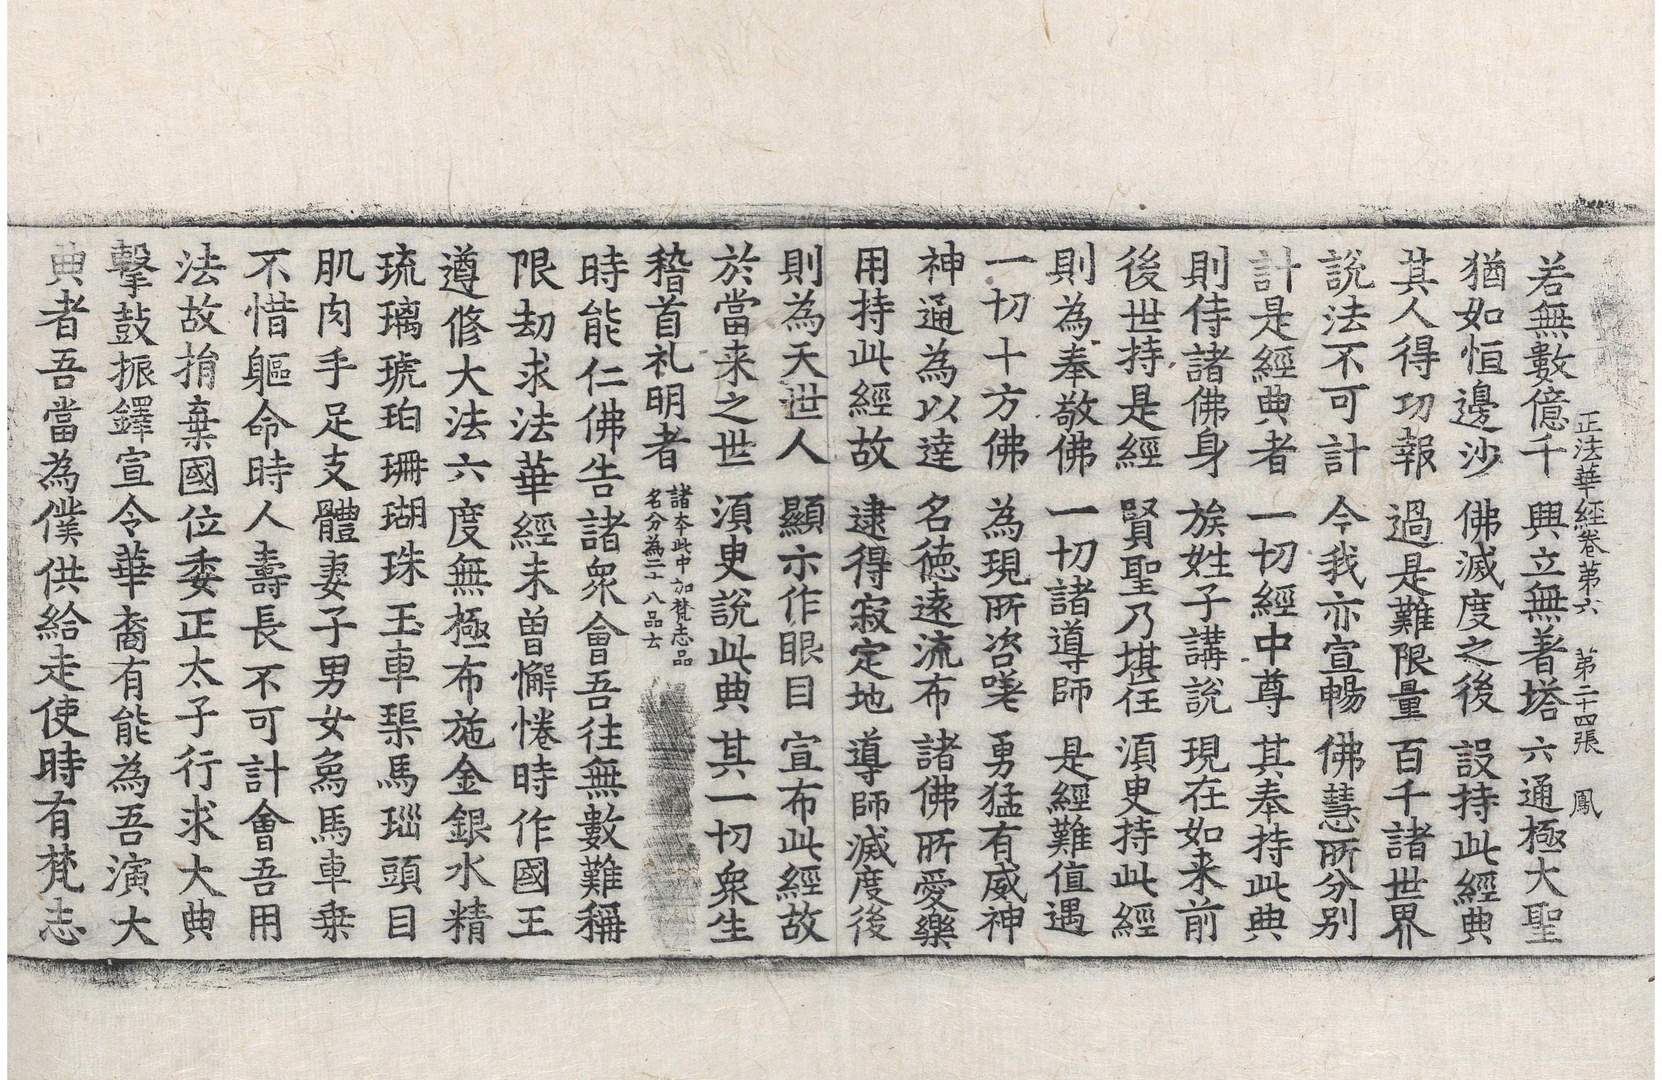 正法華經卷第六　第二十四張　鳳
若無數億千　興立無著塔　六通極大聖
猶如恒邊沙　佛滅度之後　設持此經典
其人得功報　過是難限量　百千諸世界
說法不可計　今我亦宣暢　佛慧所分别
計是經典者　一切經中尊　其奉持此典
則侍諸佛身　族姓子講說　現在如来前
後世持是經　賢聖乃堪任　湏臾持此經
則為奉敬佛　一切諸導師　是經難值遇
一切十方佛　為現所咨嗟　勇猛有威神
神通為以達　名德遠流布　諸佛所愛樂
用持此經故　逮得寂定地　導師滅度後
則為天世人　顯示作眼目　宣布此經故
於當来之世　湏臾說此典　其一切衆生
稽首礼明者
諸本此中加梵志品
名分為二十八品古
時能仁佛告諸衆會吾往無數難稱
限劫求法華經未曽懈惓時作國王
遵修大法六度無極布施金銀水精
琉璃琥珀珊瑚珠玉車璖馬瑙頭目
肌肉手足支體妻子男女象馬車乗
不惜軀命時人壽長不可計會吾用
法故捐棄國位委正太子行求大典
擊鼓振鐸宣令華裔有能為吾演大
典者吾當為僕供給走使時有梵志